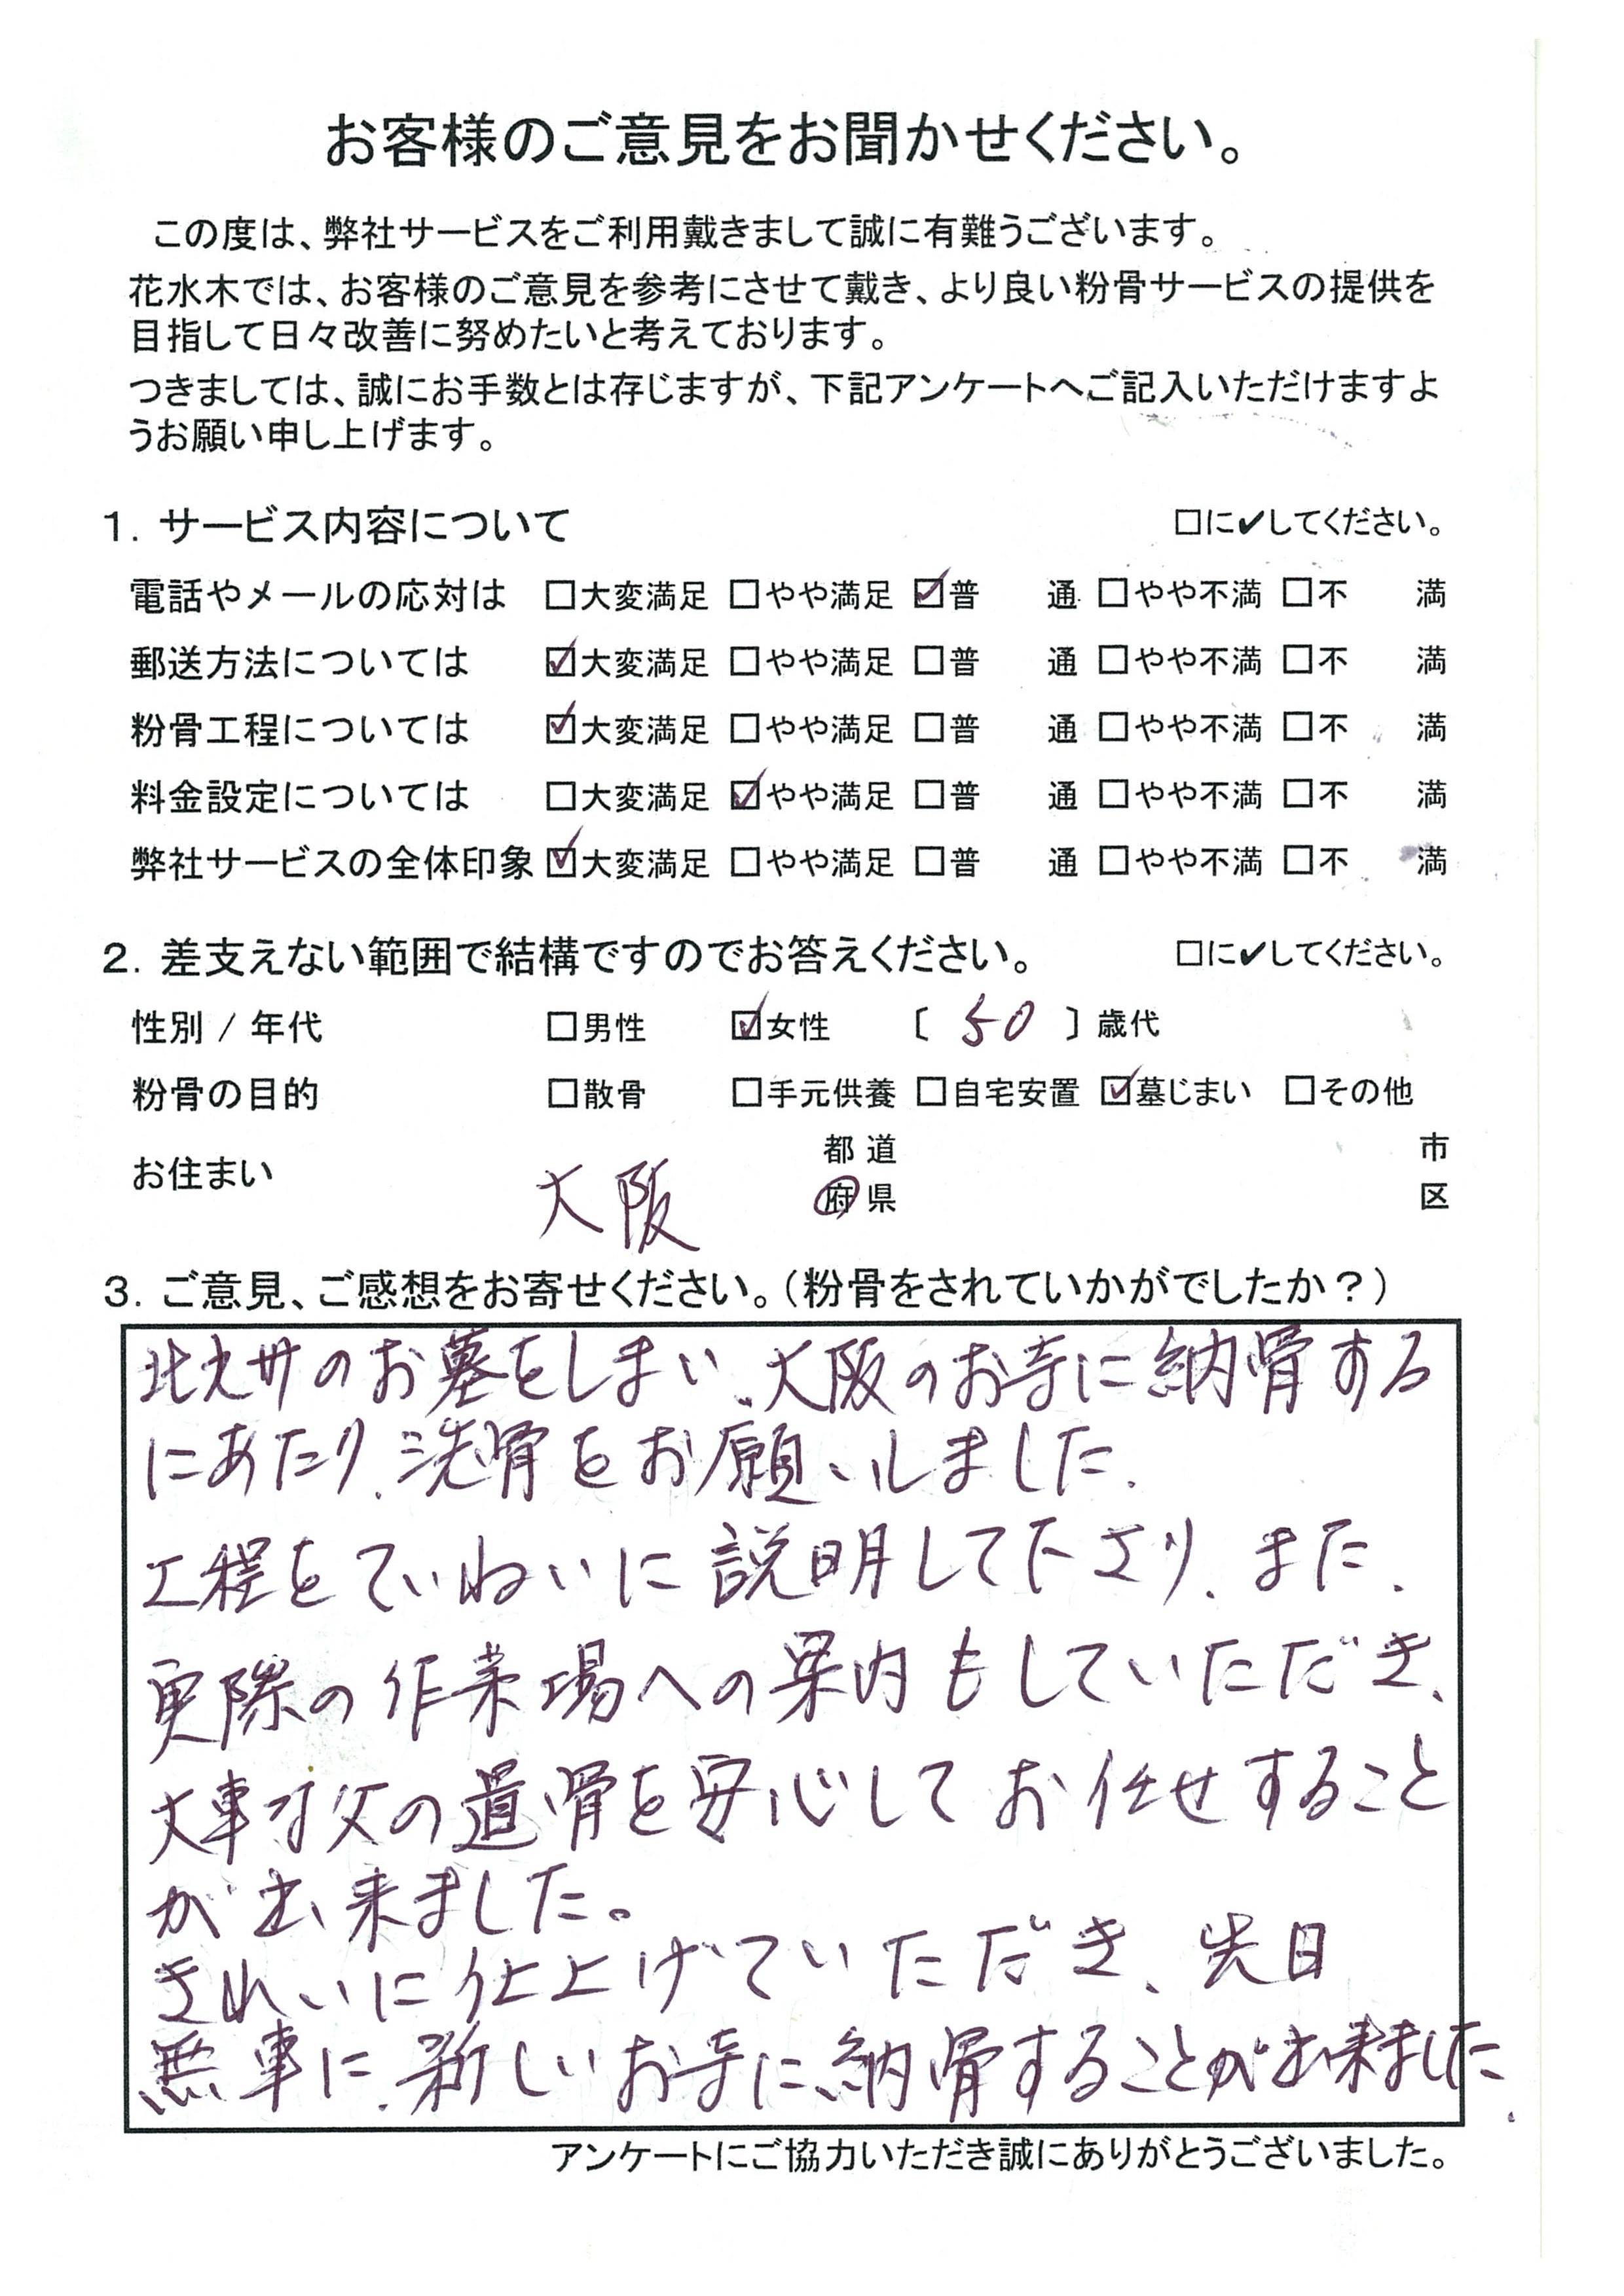 お客様のご意見をお聞かせください。
この度は、弊社サービスをご利用戴きまして誠に有難うございます。
花水木では、お客様のご意見を参考にさせて戴き、より良い粉骨サービスの提供を
目指して日々改善に努めたいと考えております。
つきましては、誠にお手数とは存じますが、下記アンケートへご記入いただけますよ
うお願い申し上げます。
1. サービス内容について □に✔してください。
電話やメールの応対は □大変満足 □やや満足 ☑普 通 □やや不満 □不 満
郵送方法については ☑大変満足 □やや満足 □普 通 □やや不満 □不 満
粉骨工程については ☑大変満足 □やや満足 □普 通 □やや不満 □不 満
料金設定については □大変満足 ☑やや満足 □普 通 □やや不満 □不 満
弊社サービスの全体印象 ☑大変満足 □やや満足 □普 通 □やや不満 □不 満
2. 差支えない範囲で結構ですのでお答えください。 □に✔してください。
性別 / 年代 □男性 ☑女性 〔 50 〕歳代
粉骨の目的 □散骨 □手元供養 □自宅安置 ☑墓じまい □その他
お住まい 大阪 都 道 府 県 市 区
3. ご意見、ご感想をお寄せください。（粉骨をされていかがでしたか？）
北九州のお墓をしまい、大阪のお寺に納骨する
にあたり、洗骨をお願いしました。
工程をていねいに説明して下さり、また、
実際の作業場への案内もしていただき、
大事な父の遺骨を安心してお任せすること
が出来ました。
きれいに仕上げていただき、先日
無事に、新しいお寺に、納骨することが出来ました。
アンケートにご協力いただき誠にありがとうございました。